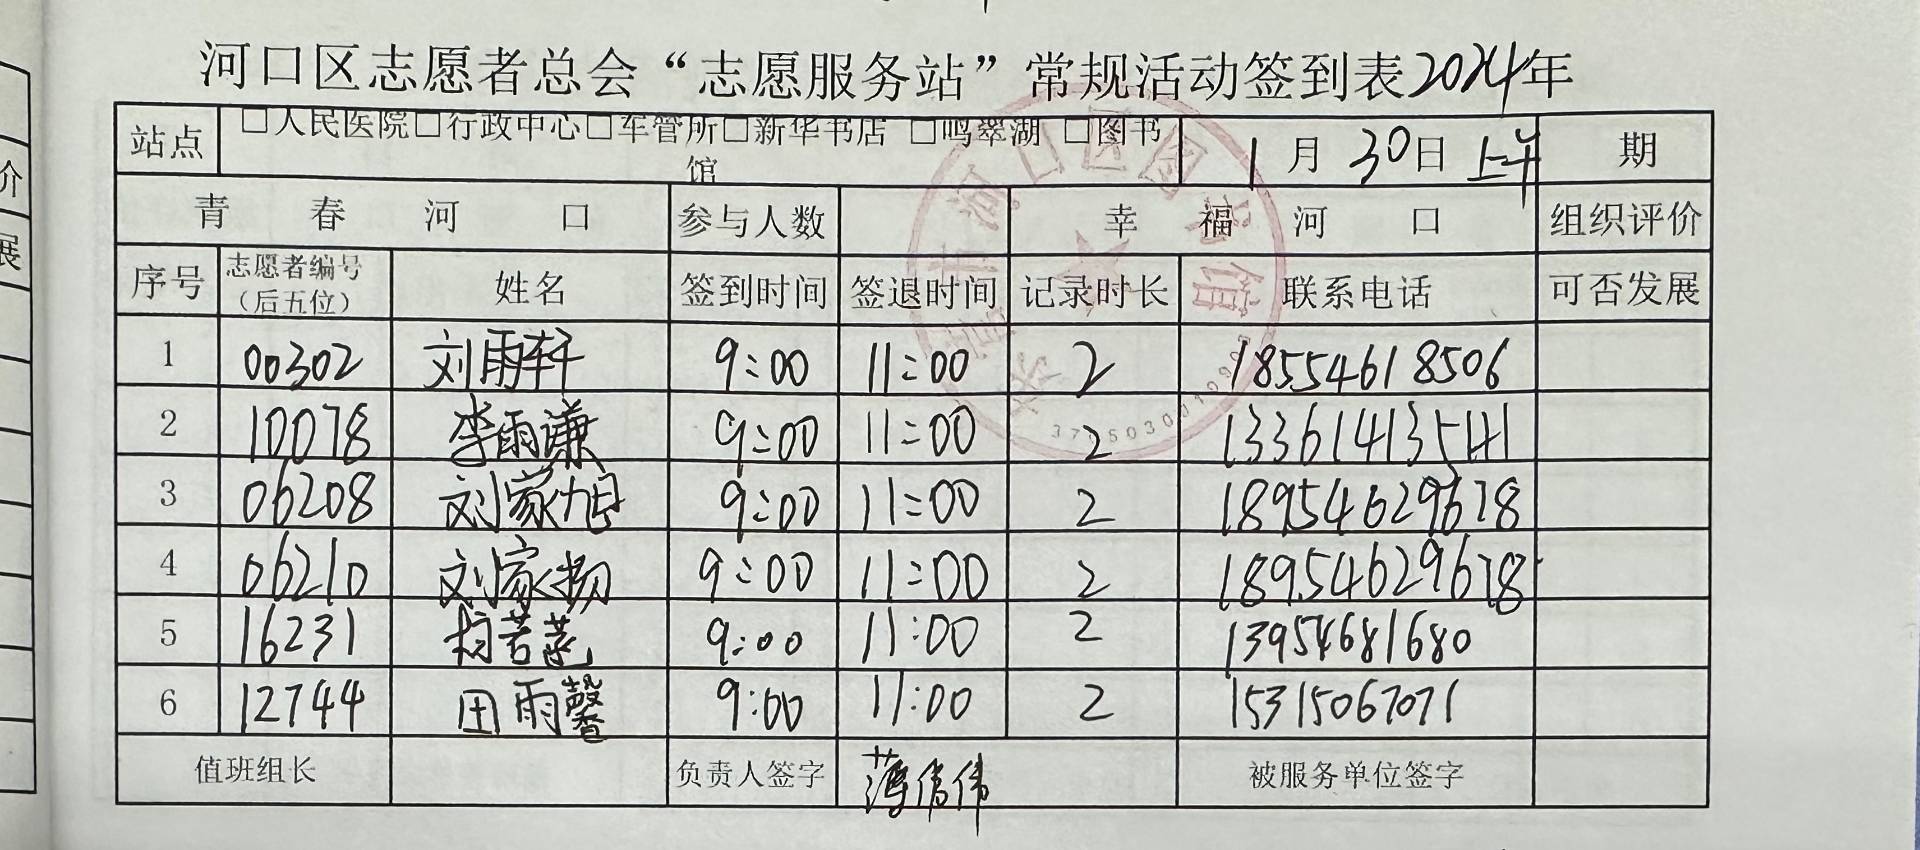 河口区志愿者总会“志愿服务站”常规活动签到表2024年
站点 □人民医院□行政中心□车管所□新华书店 □鸣翠湖 □图书馆 1月30日上午 期
青春河口 参与人数 幸福河口 组织评价
序号 志愿者编号（后五位） 姓名 签到时间 签退时间 记录时长 联系电话 可否发展
1 00302 刘雨轩 9:00 11:00 2 18554618506
2 10078 李雨谦 9:00 11:00 2 13361413541
3 06208 刘家旭 9:00 11:00 2 18954629678
4 06210 刘家扬 9:00 11:00 2 18954629678
5 16231 9:00 11:00 2 13954681680
6 12744 田雨馨 9:00 11:00 2 15315067071
值班组长 负责人签字 薄伟伟 被服务单位签字
介
展